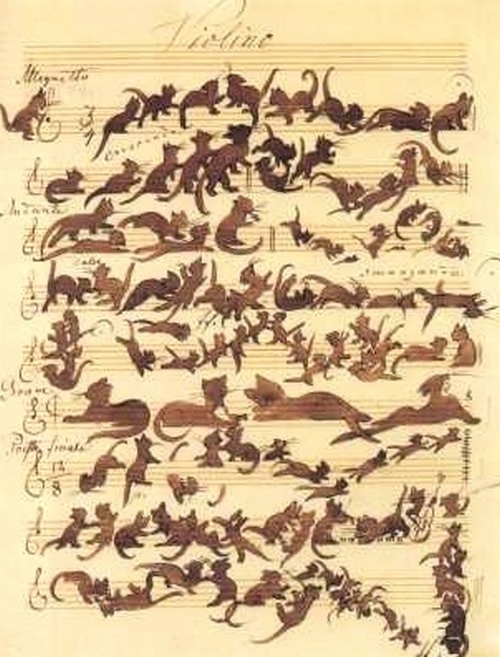 Violino
Allegretto
3
4
crescendo
Andante
smorzando
Grave
Presto finale
12
8